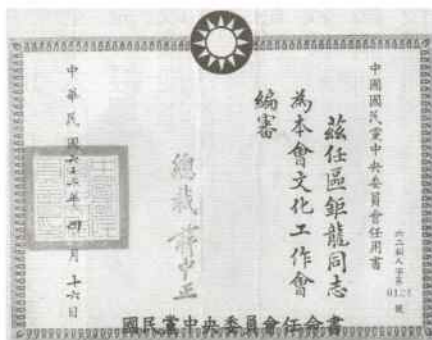 中國國民黨中央委員會任用書
茲任區鉅龍同志
為本會文化工作會
編審
總裁 蔣中正
中華民國六十二年四月十六日
國民黨中央委員會任命書